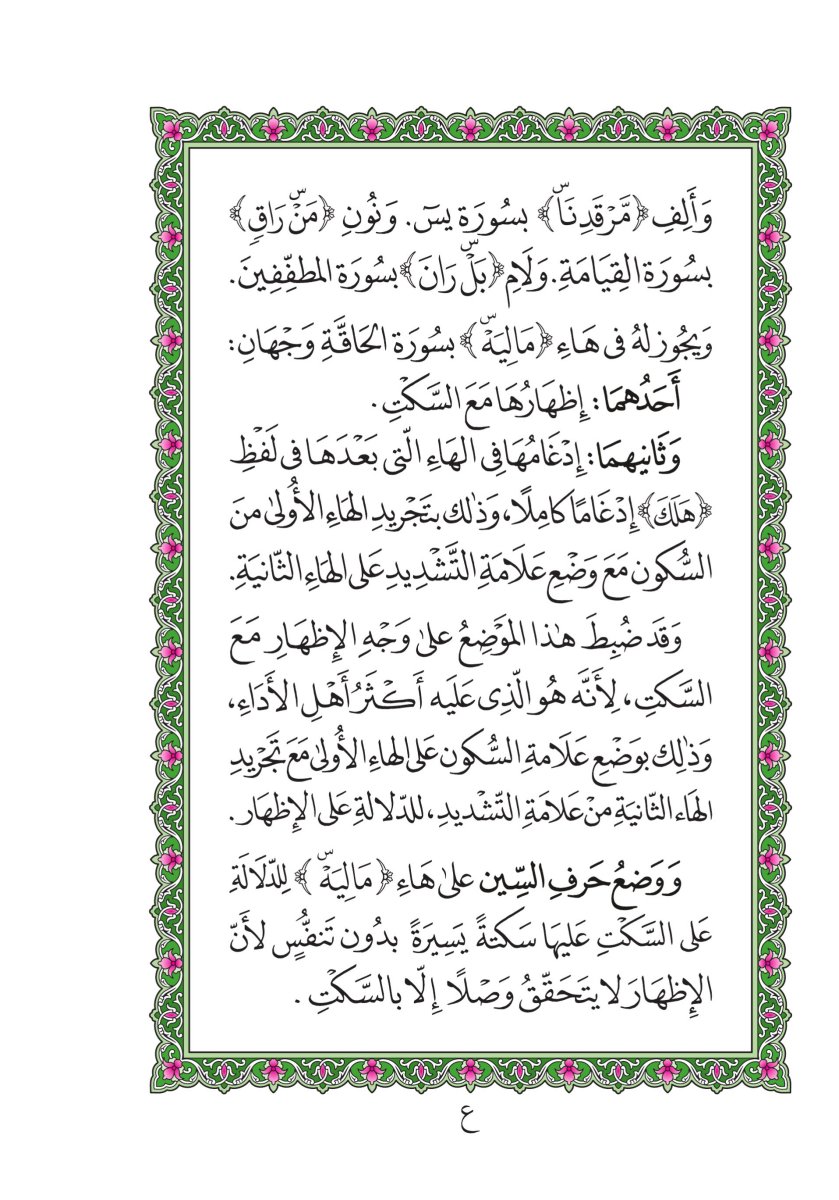 وَأَلِفِ ﴿مَّرْقَدِنَاۜ﴾ بسُورَة يسٓ. وَنُونِ ﴿مَنْۜ رَاقٍ﴾
بسُورَة القِيَامَةِ. وَلَامِ ﴿بَلْۜ رَانَ﴾ بسُورَة المطفِّفِينَ.
وَيَجُوز لهُ فى هَاءِ ﴿مَالِيَهْۜ﴾ بسُورَة الحَاقَّةِ وَجْهَانِ:
أَحَدُهمَا: إظهَارُهَا مَعَ السَّكْتِ.
وَثَانيهمَا: إدْغَامُهَا فِى الهَاءِ الَّتى بَعْدَهَا فى لَفْظِ
﴿هَلَكَ﴾ إدْغَامًا كامِلًا، وَذٰلك بتَجْريدِ الهَاءِ الأُولىٰ منَ
السُّكون مَعَ وَضْعِ عَلَامَةِ التَّشْدِيدِ عَلى الهَاءِ الثّانيَةِ.
وَقَد ضُبِطَ هٰذا الموْضِعُ علىٰ وَجْهِ الإظهَارِ مَعَ
السَّكتِ، لِأَنَّه هُو الَّذِى عَلَيه أَكْثَرُ أَهْلِ الأَدَاءِ،
وَذٰلِك بوَضْعِ عَلَامةِ السُّكون عَلى الهاءِ الأُولىٰ مَعَ تَجْرِيدِ
الهَاء الثّانيَةِ منْ عَلامَةِ التّشْديدِ، للدّلالةِ عَلى الإظهَار.
وَوَضعُ حَرفِ السِّين علىٰ هَاءِ ﴿مَالِيَهْۜ﴾ لِلدّلَالَةِ
عَلى السَّكْتِ عَليهَا سَكتةً يَسِيرَةً بدُون تَنفُّسٍ لأنّ
الإظهَارَ لا يتَحَقّقُ وَصْلًا إلّا بالسَّكْتِ.
ع